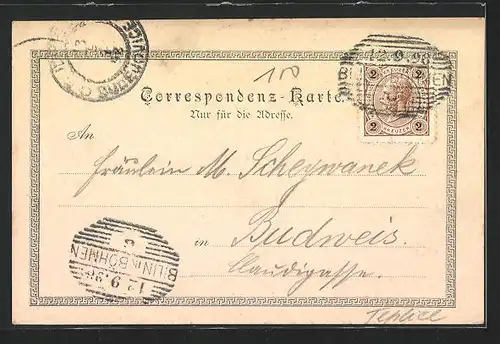 100
12.9.98
B
MEN
2 2
KREUZER
2 2
Correspondenz-Karte
Nur für die Adresse.
An
Fräulein M. Scheywanek
in Budweis.
Claudigasse.
BILIN in BÖHMEN
12.9.98
Teplice